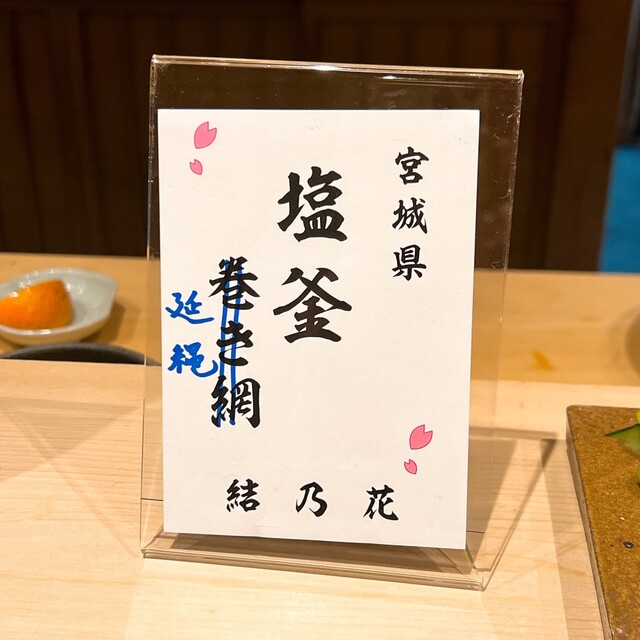 宮城県
塩釜
巻き網
延縄
結乃花